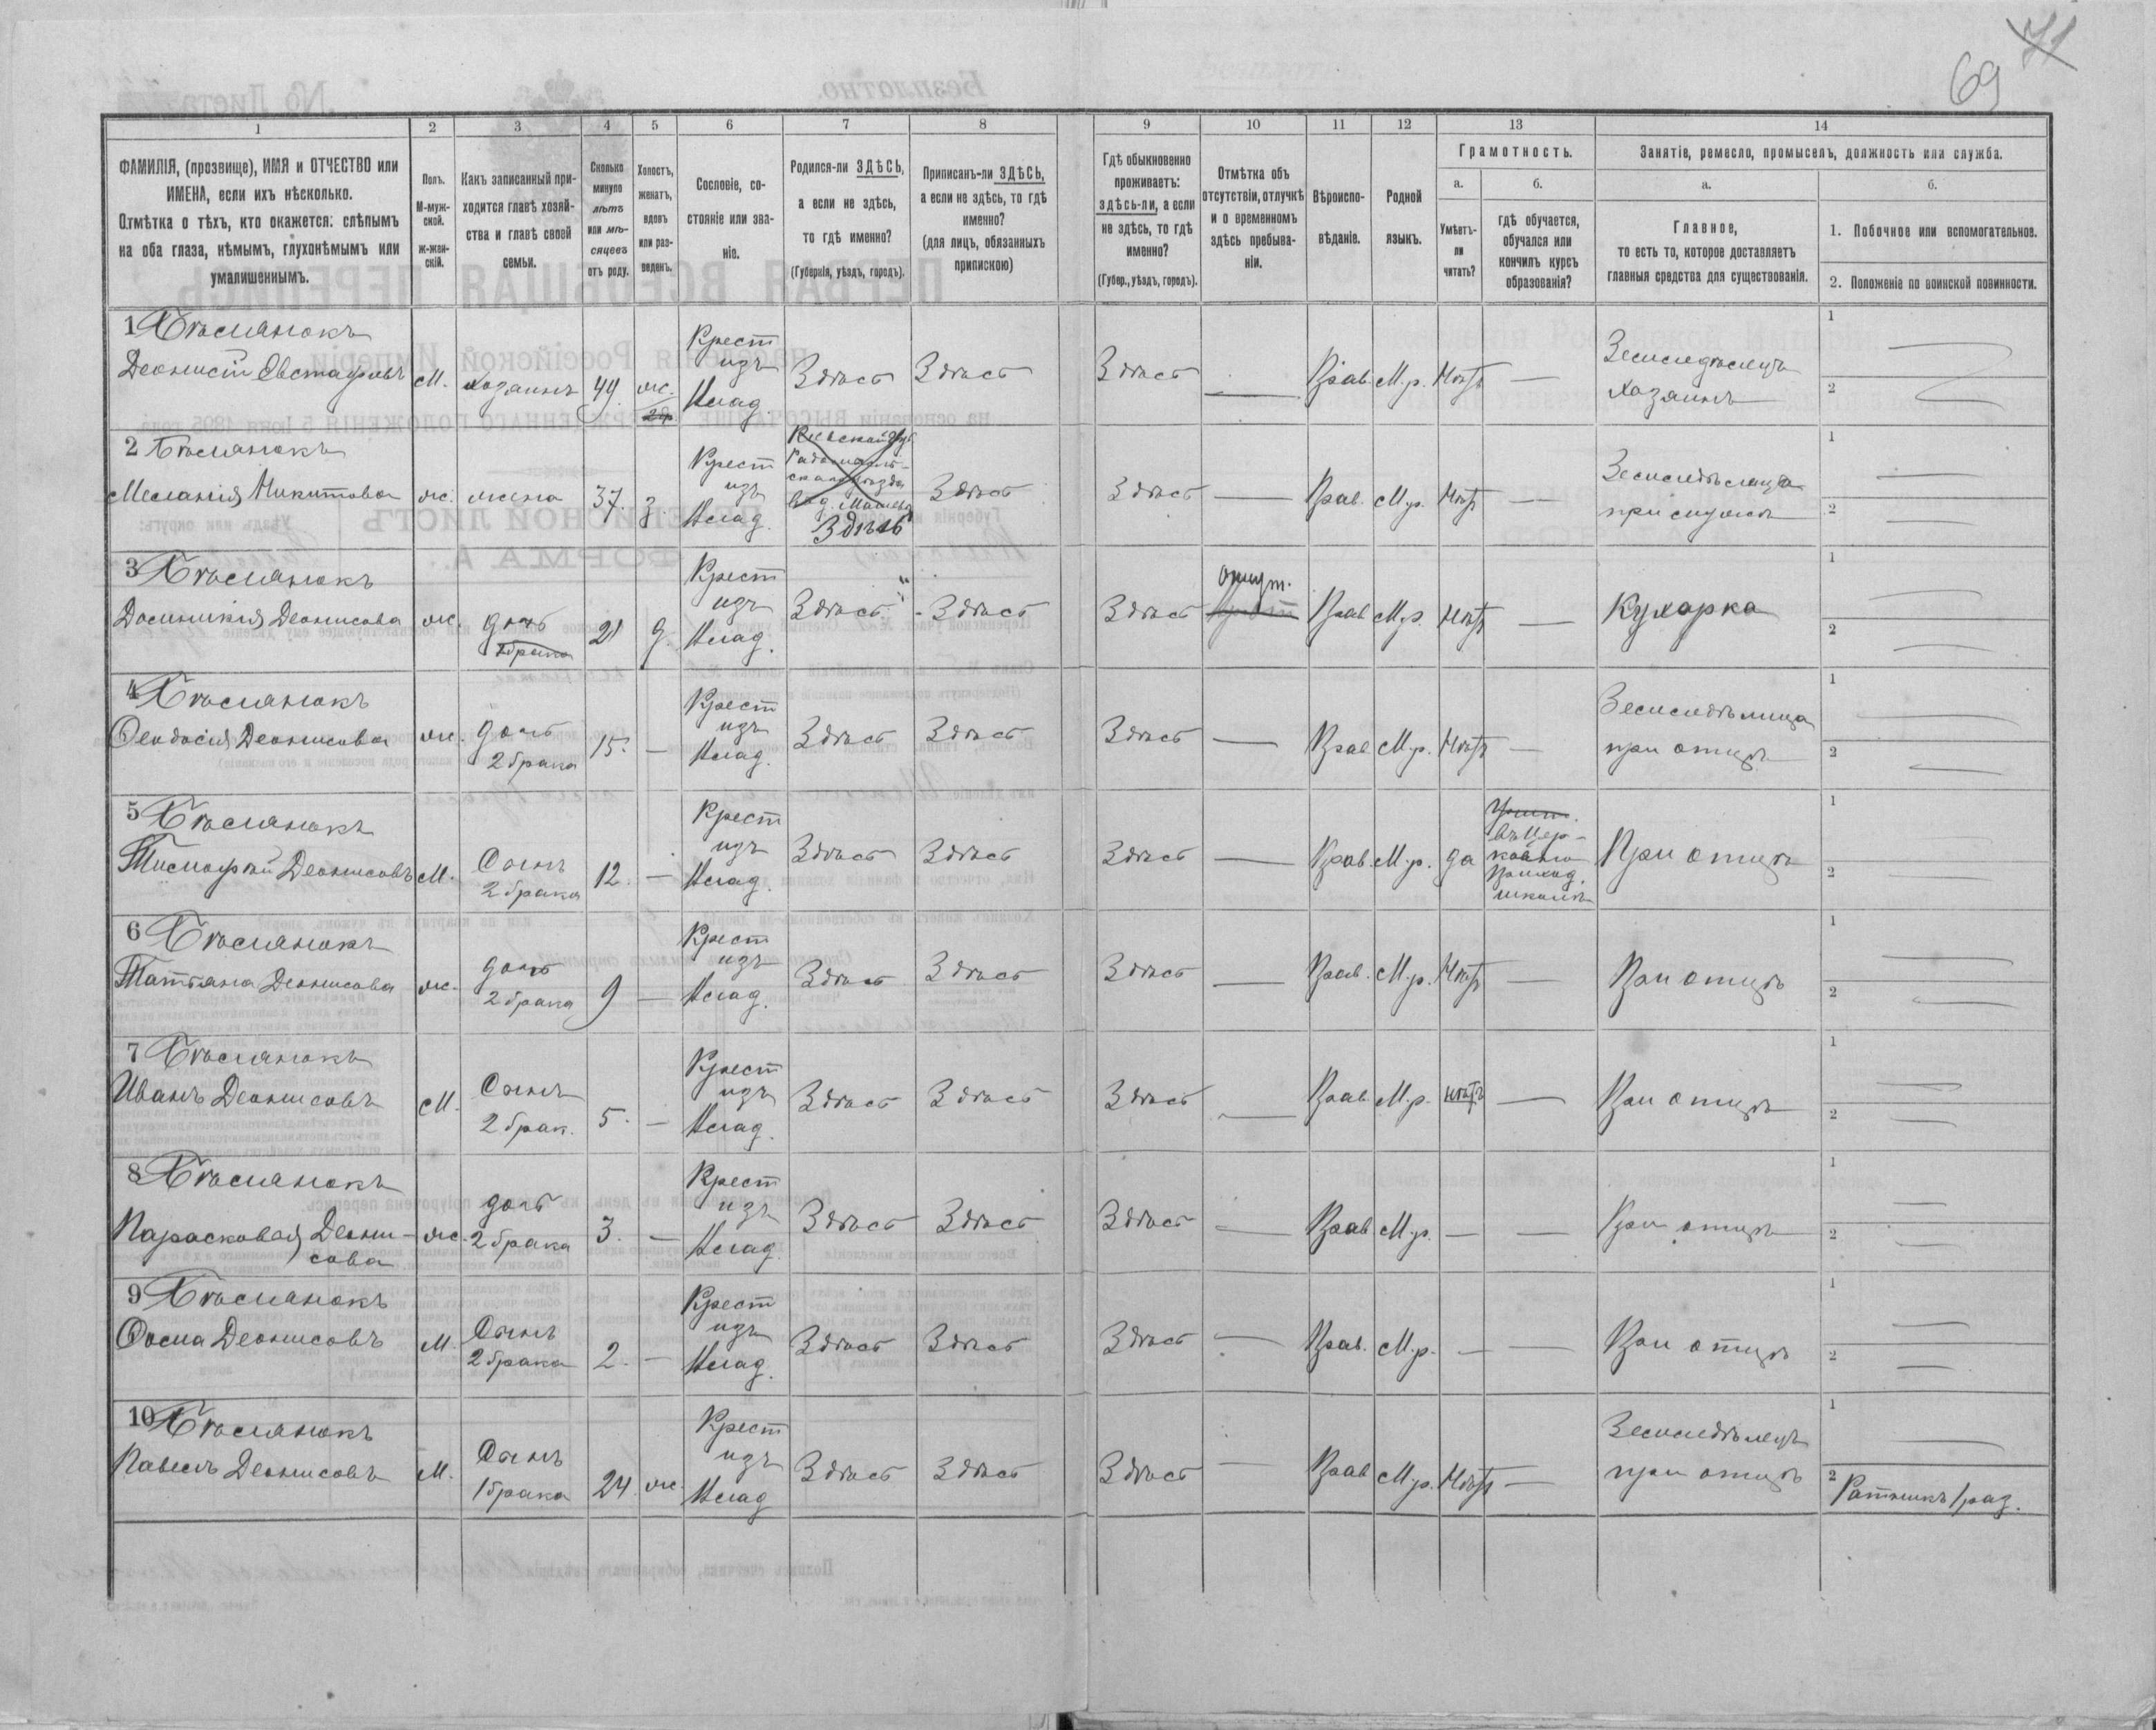 69 71
1 2 3 4 5 6 7 8 9 10 11 12 13 14
ФАМИЛІЯ, (прозвище), ИМЯ и ОТЧЕСТВО или
ИМЕНА, если ихъ нѣсколько.
Отмѣтка о тѣхъ, кто окажется: слѣпымъ
на оба глаза, нѣмымъ, глухонѣмымъ или
умалишеннымъ.
Полъ.
М-муж-
ской.
Ж-жен-
скій.
Какъ записанный при-
ходится главѣ хозяй-
ства и главѣ своей
семьи.
Сколько
минуло
лѣтъ
или мѣ-
сяцевъ
отъ роду.
Холостъ,
женатъ,
вдовъ
или раз-
веденъ.
Сословіе, со-
стояніе или зва-
ніе.
Родился-ли ЗДѢСЬ,
а если не здѣсь,
то гдѣ именно?
(Губернія, уѣздъ, городъ).
Приписанъ-ли ЗДѢСЬ,
а если не здѣсь, то гдѣ
именно?
(для лицъ, обязанныхъ
припискою)
Гдѣ обыкновенно
проживаетъ:
здѣсь-ли, а если
не здѣсь, то гдѣ
именно?
(Губер., уѣздъ, городъ).
Отмѣтка объ
отсутствіи, отлучкѣ
и о временномъ
здѣсь пребыва-
ніи.
Вѣроиспо-
вѣданіе.
Родной
языкъ.
Грамотность.
а.
Умѣетъ-
ли
читать?
б.
гдѣ обучается,
обучался или
кончилъ курсъ
образованія?
Занятіе, ремесло, промыселъ, должность или служба.
а.
Главное,
то есть то, которое доставляетъ
главныя средства для существованія.
б.
1. Побочное или вспомогательное.
2. Положеніе по воинской повинности.
1
Деонисій Евстафіевъ М. хозяинъ 49. ж. Крест изъ Влад. Здѣсь Здѣсь Здѣсь — Прав. М.р. Нѣтъ — Земледѣлецъ
хозяинъ
2
Меланія Никитова ж. жена 37. з. Крест изъ Влад. Здѣсь Здѣсь Здѣсь — Прав. М.р. Нѣтъ — Земледѣлица
при мужѣ
3
Домникія Деонисова ж. дочь 21 д. Крест изъ Влад. Здѣсь Здѣсь Здѣсь отсут. Прав М.р. Нѣтъ — Кухарка
4
Ѳеодосія Деонисова ж. дочь
2 брака 15. — Крест изъ Влад. Здѣсь Здѣсь Здѣсь — Прав М.р. Нѣтъ — Земледѣлица
при отцѣ
5
Тимофей Деонисовъ М. Сынъ
2 брака 12. — Крест изъ Влад. Здѣсь Здѣсь Здѣсь — Прав. М.р. да въ Цер-
ковно
Приход.
школѣ При отцѣ
6
Татьяна Деонисова ж. дочь
2 брака 9 — Крест изъ Влад. Здѣсь Здѣсь Здѣсь — Прав. М.р. Нѣтъ — При отцѣ
7
Иванъ Деонисовъ М. Сынъ
2 брак. 5. — Крест изъ Влад. Здѣсь Здѣсь Здѣсь — Прав. М.р. Нѣтъ — При отцѣ
8
Парасковея Деони-
сова ж. дочь
2 брака 3. — Крест изъ Влад. Здѣсь Здѣсь Здѣсь — Прав М.р. — — При отцѣ
9
Ѳома Деонисовъ М. Сынъ
2 брака 2. — Крест изъ Влад. Здѣсь Здѣсь Здѣсь — Прав. М.р. — — При отцѣ
10
Павелъ Деонисовъ М. Сынъ
1 брака 24. ж. Крест изъ Влад Здѣсь Здѣсь Здѣсь — Прав М.р. Нѣтъ — Земледѣлецъ
при отцѣ
Ратникъ 1 раз.